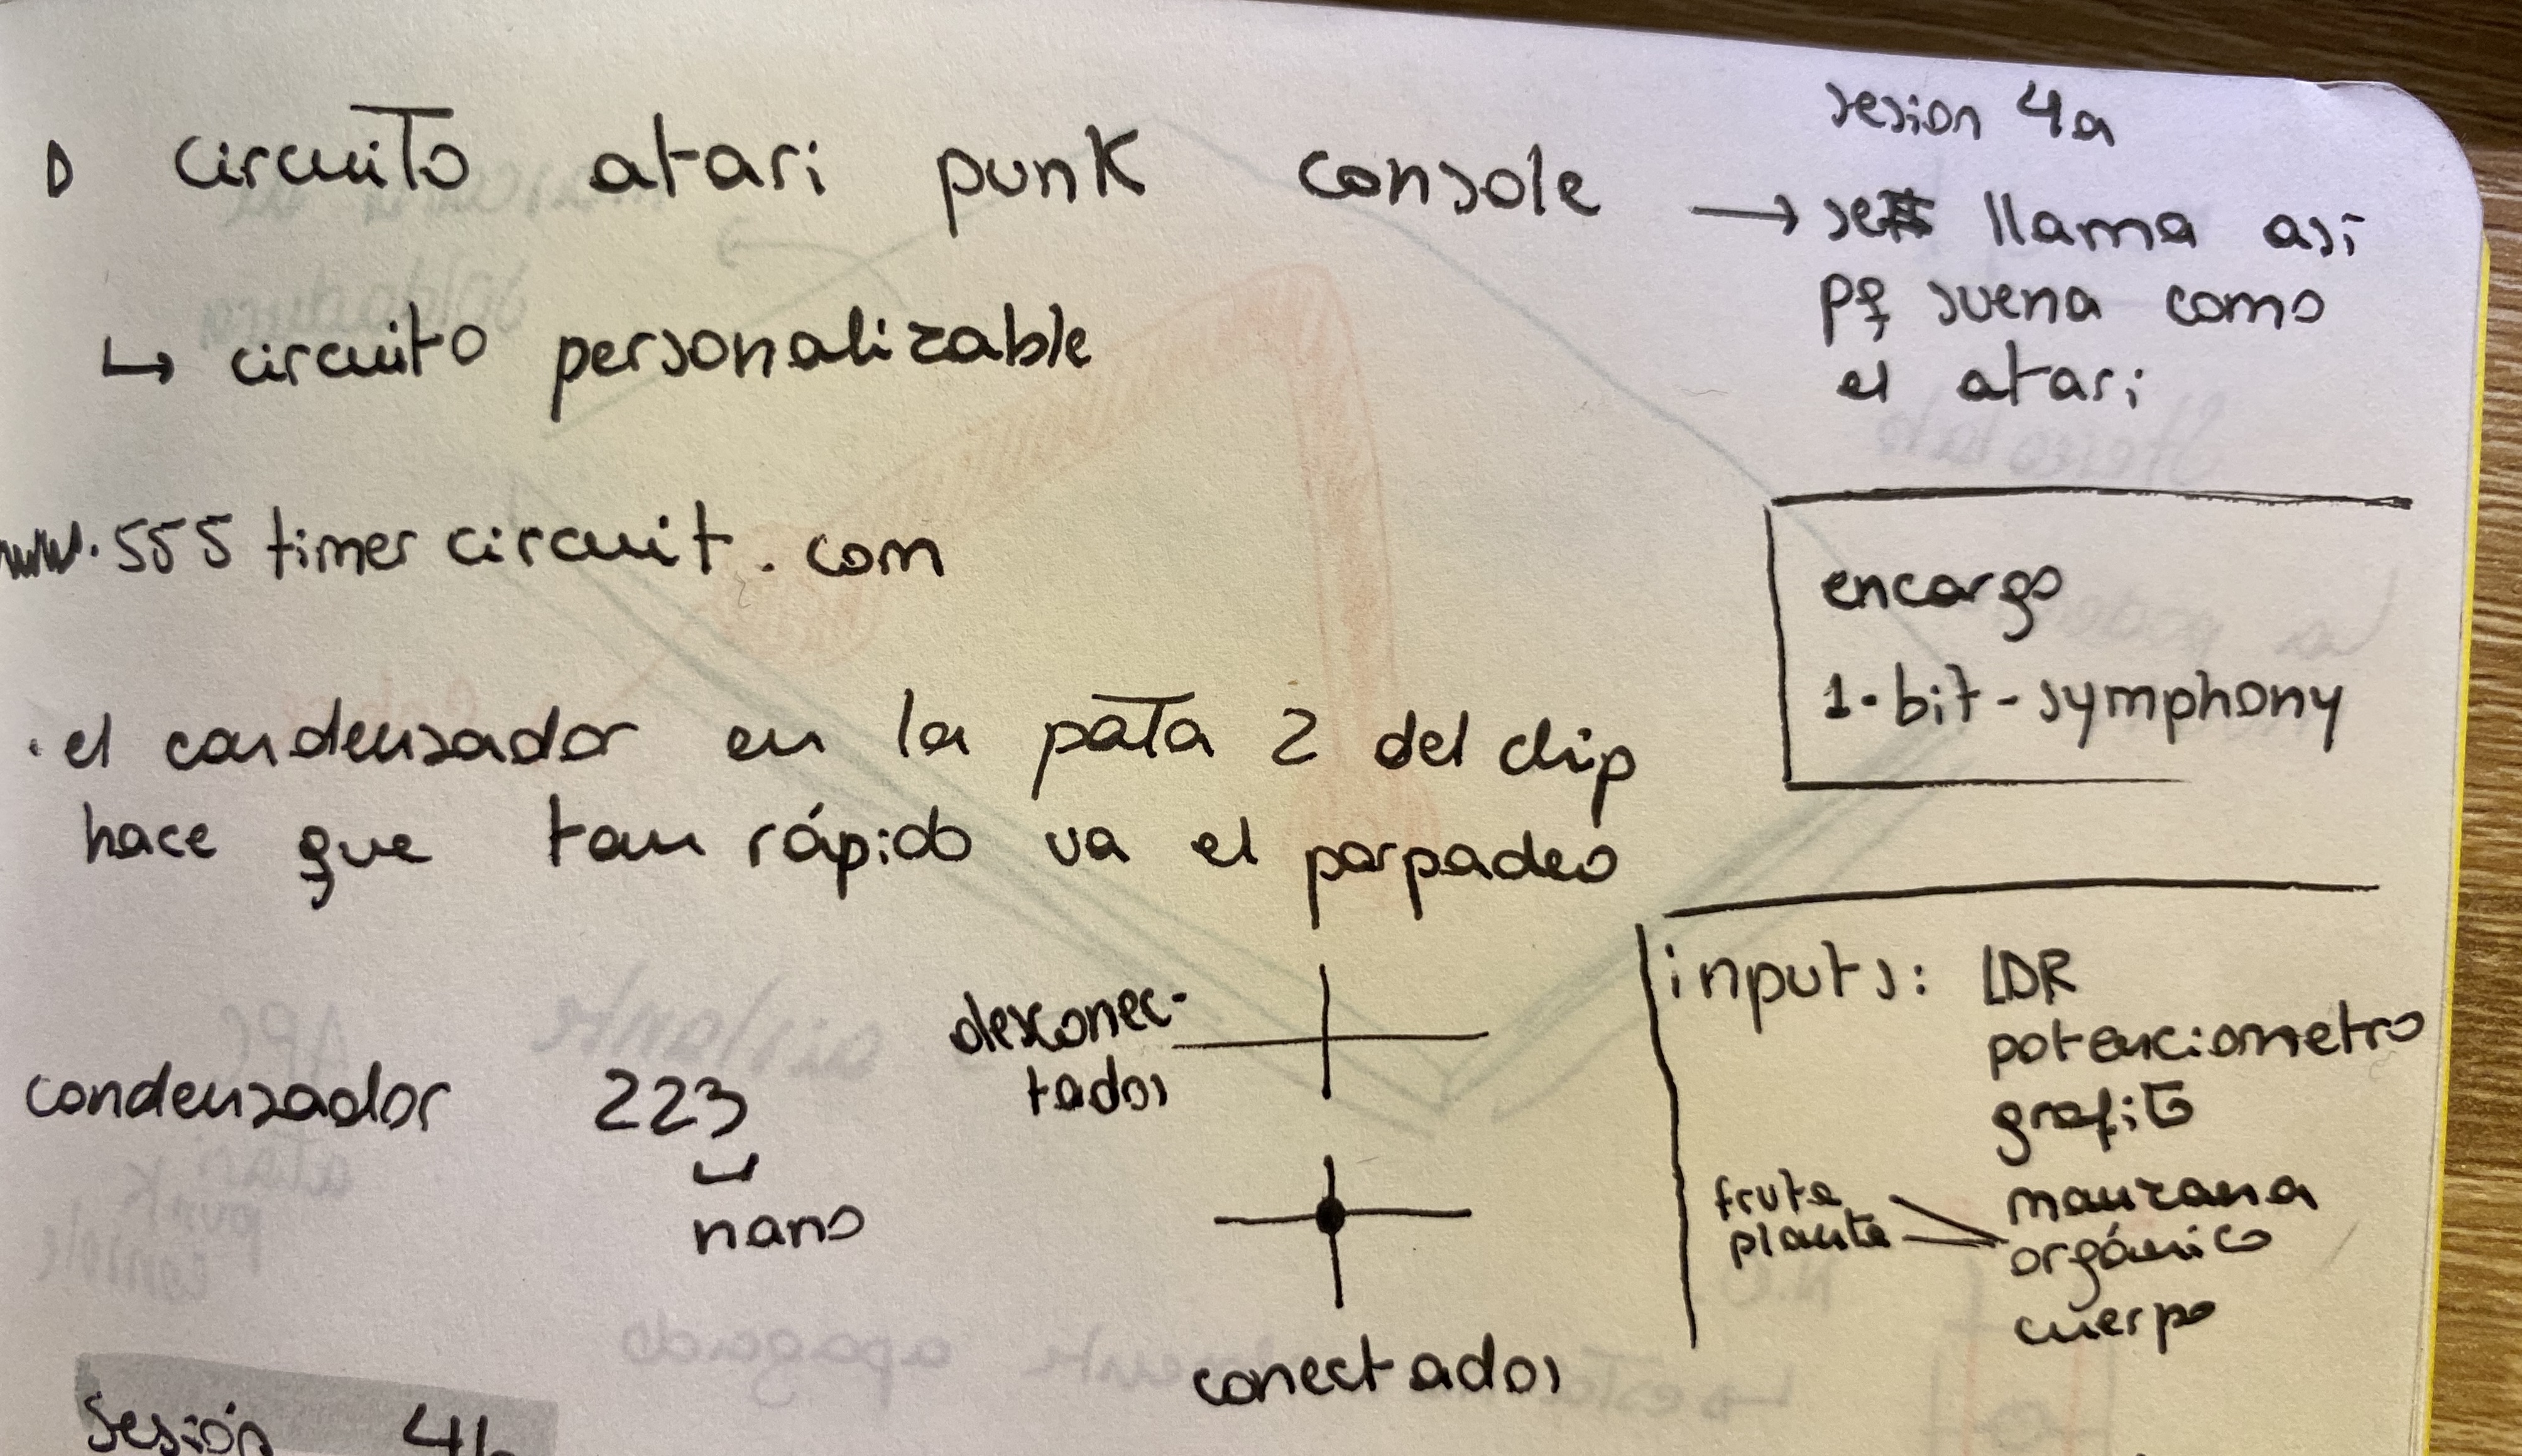 sesion 4a
circuito atari punk console → se llama asi
pq suena como
el atari
↳ circuito personalizable
www.555 timer circuit.com
encargo
1-bit-symphony
· el condensador en la pata 2 del chip
hace que tan rápido va el parpadeo
condensador 223
nano
desconec-
tados
conectados
inputs: LDR
potenciometro
grafito
manzana
fruta
planta
orgánico
cuerpo
sesión 4b